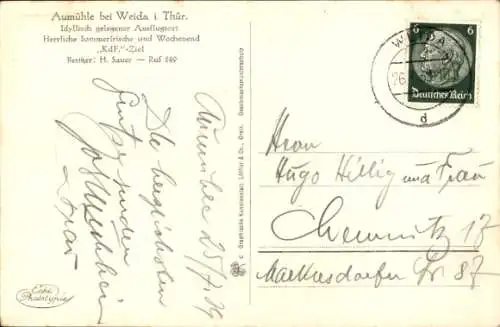 Aumühle bei Weida i. Thür.
Idyllisch gelegener Ausflugsort
Herrliche Sommerfrische und Wochenend
„KdF.“-Ziel
Besitzer: H. Sauer — Ruf 589
Aumühle 25/7.39
Die herzlichsten
Grüße senden
u Frau
Echte
Phototypie
Graphische Kunstanstalt Löffler & Co., Greiz
WEIDA
26.
d
6 6
Deutsches Reich
Herrn
Hugo Hillig und Frau
Chemnitz 17
Markersdorfer Str 87